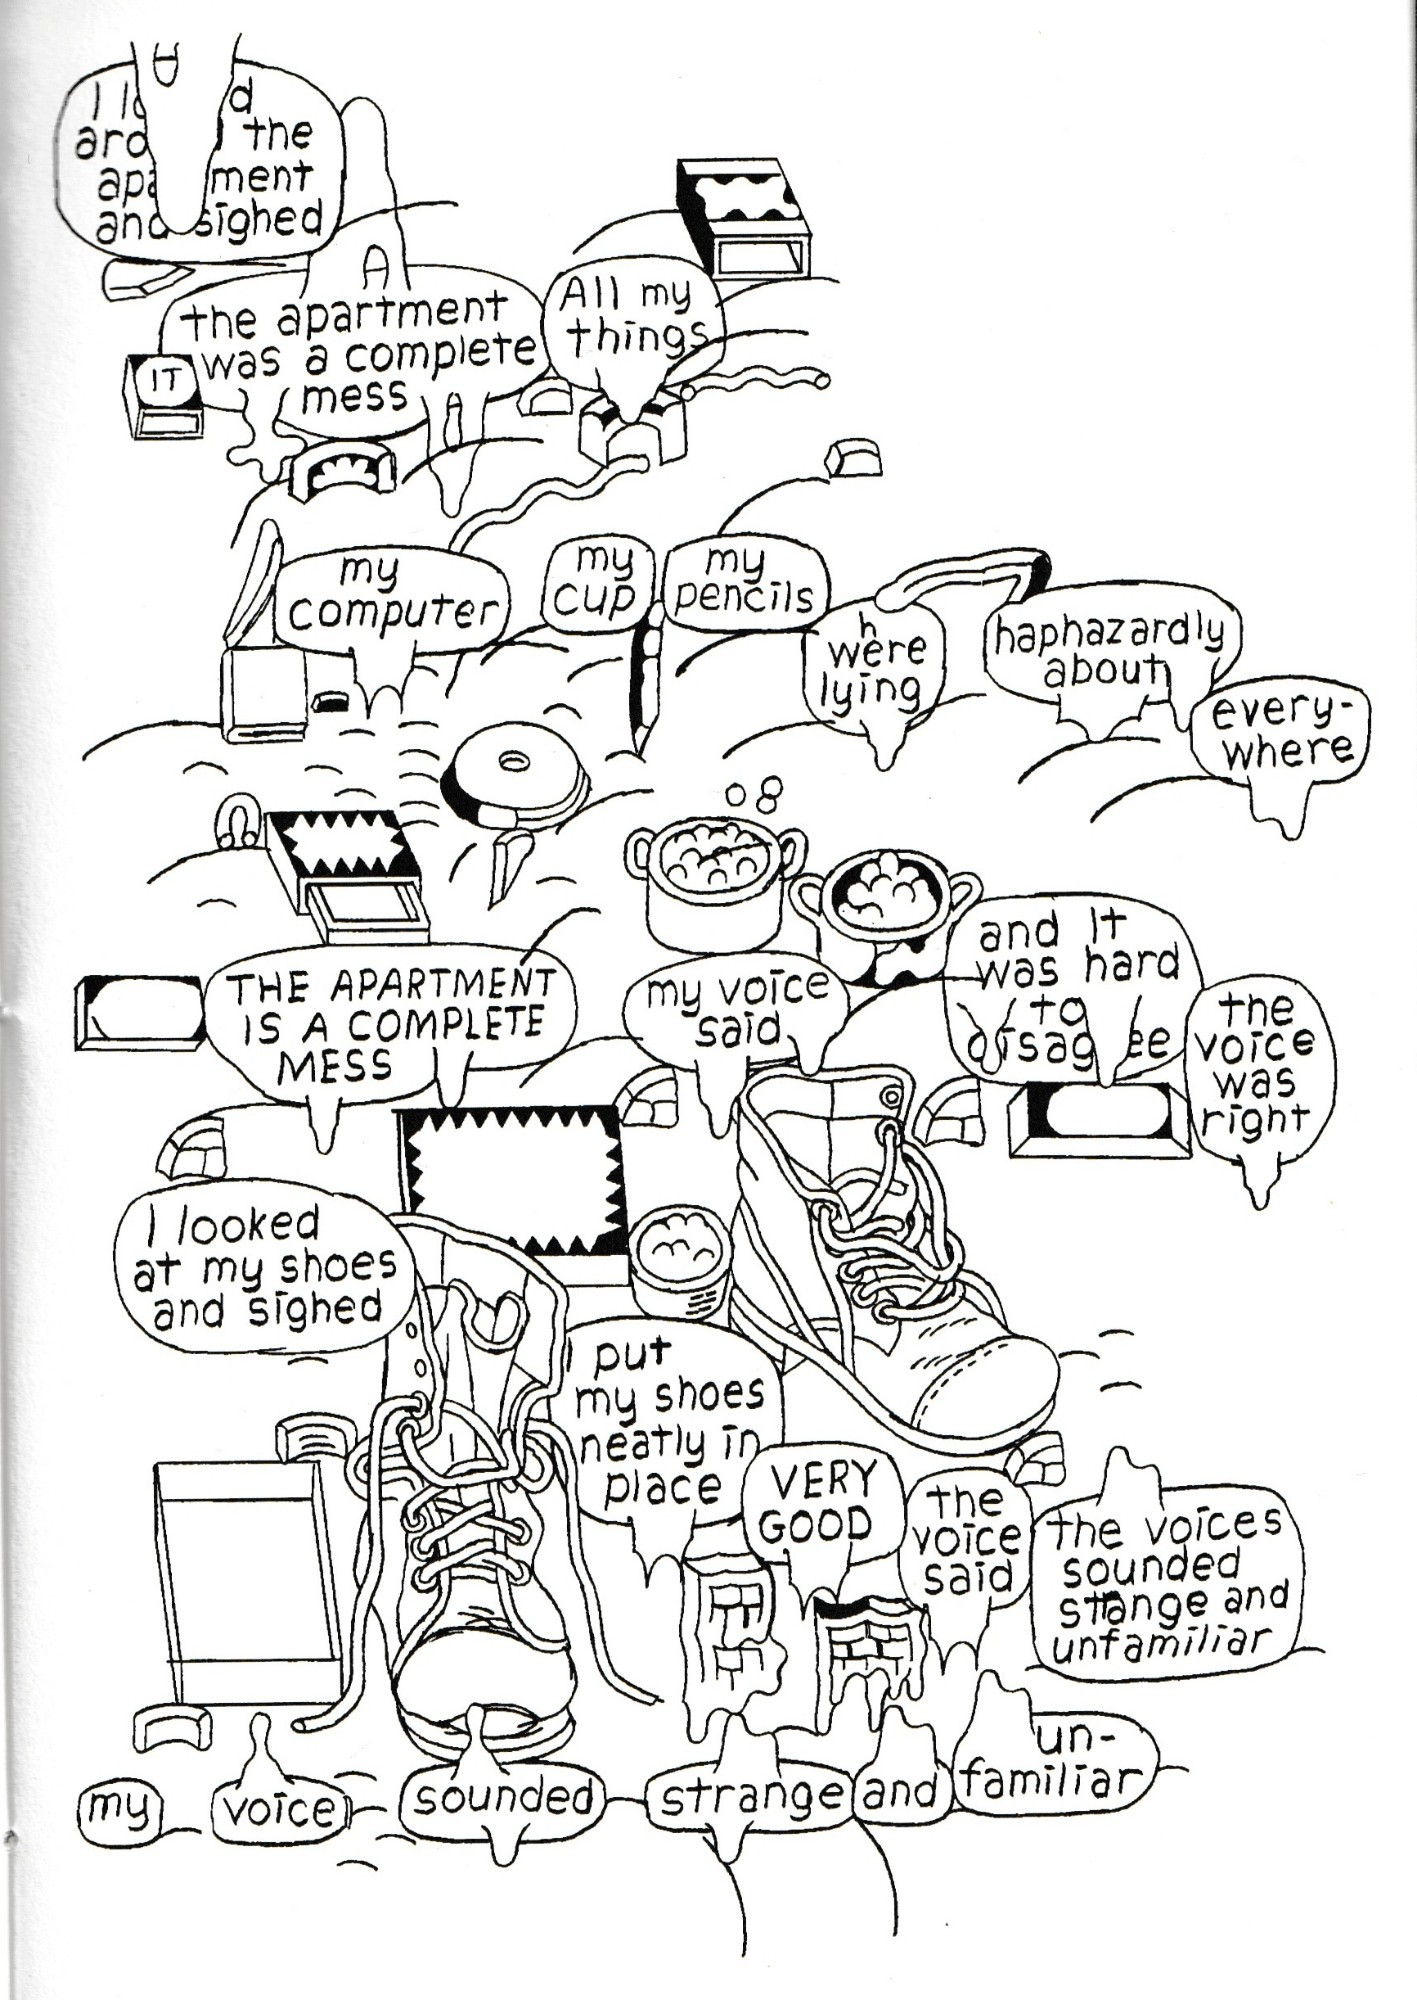 I lo d
aro the
apa ment
and sighed
the apartment
was a complete
mess
IT
All my
things
my
computer
my
cup
my
pencils
h
were
lying
haphazardly
about
every-
where
THE APARTMENT
IS A COMPLETE
MESS
my voice
said
and it
was hard
to
disag ee
the
voice
was
right
I looked
at my shoes
and sighed
I put
my shoes
neatly in
place
VERY
GOOD
the
voice
said
the voices
sounded
strange and
unfamiliar
my
voice
sounded
strange
and
un-
familiar